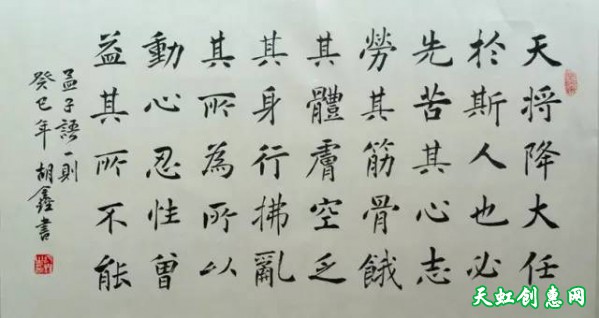 天将降大任
於斯人也必
先苦其心志
勞其筋骨餓
其體膚空乏
其身行拂亂
其所為所以
動心忍性曾
益其所不能
孟子語一則
癸巳年胡鑫書
天虹创惠网